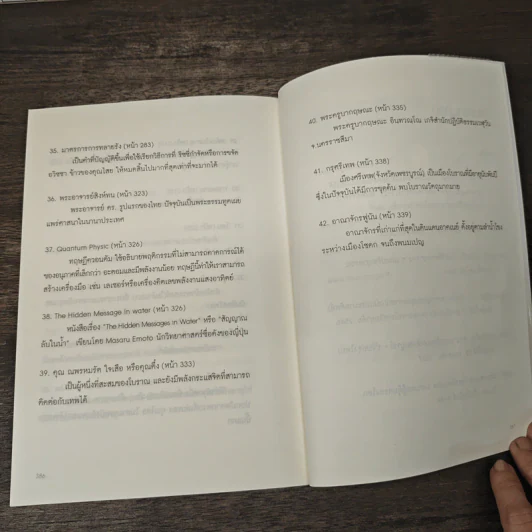 35. มาตรการการพลาธรัง (หน้า 283)
เป็นคำที่บัญญัติขึ้นเพื่อใช้เรียกวิธีการที่ ริชชี่กำจัดหรือการขจัด
อวิชชา ชั่วของคุณไสย ให้หมดสิ้นไปมากที่สุดเท่าที่จะมากได้
36. พระอาจารย์สิงห์ทน (หน้า 323)
พระอาจารย์ ดร. รูปแรกของไทย ปัจจุบันเป็นพระธรรมทูตเผย
แพร่ศาสนาในนานาประเทศ
37. Quantum Physic (หน้า 326)
ทฤษฎีควอนตัม ใช้อธิบายพฤติกรรมที่ไม่สามารถอาดการณ์ได้
ของอนุภาคที่เล็กกว่า อะตอมและมีพลังงานน้อย ทฤษฎีนี้ทำให้เราสามารถ
สร้างเครื่องมือ เช่น เลเซอร์หรือเครื่องคิดเลขพลังงานแสงอาทิตย์
38. The Hidden Message in water (หน้า 326)
หนังสือเรื่อง "The Hidden Messages in Water" หรือ "สัญญาณ
ลับในน้ำ" เขียนโดย Masaru Emoto นักวิทยาศาสตร์ชื่อดังของญี่ปุ่น
39. คุณ ณพรหมรัค ใจเสือ หรือคุณตึ๋ง (หน้า 333)
เป็นผู้หนึ่งที่สะสมของโบราณ และยังมีพลังกระแสจิตที่สามารถ
ติดต่อกับเทพได้
40. พระครูบากฤษณะ (หน้า 335)
พระครูบากฤษณะ อินทวณฺโณ เกจิสำนักปฏิบัติธรรม
จ.นครราชสีมา
41. กรุศรีเทพ (หน้า 338)
เมืองศรีเทพ(จังหวัดเพชรบูรณ์) เป็นเมืองโบราณที่มีอายุนับพันปี
ซึ่งในปัจจุบันได้มีการขุดค้น พบโบราณวัตถุมากมาย
42. อาณาจักรฟูนัน (หน้า 339)
อาณาจักรที่เก่าแก่ที่สุดในดินแดนอาคเนย์ ตั้งอยู่ตามลำน้ำโขง
ระหว่างเมืองโชดก จนถึงพนมเปญ